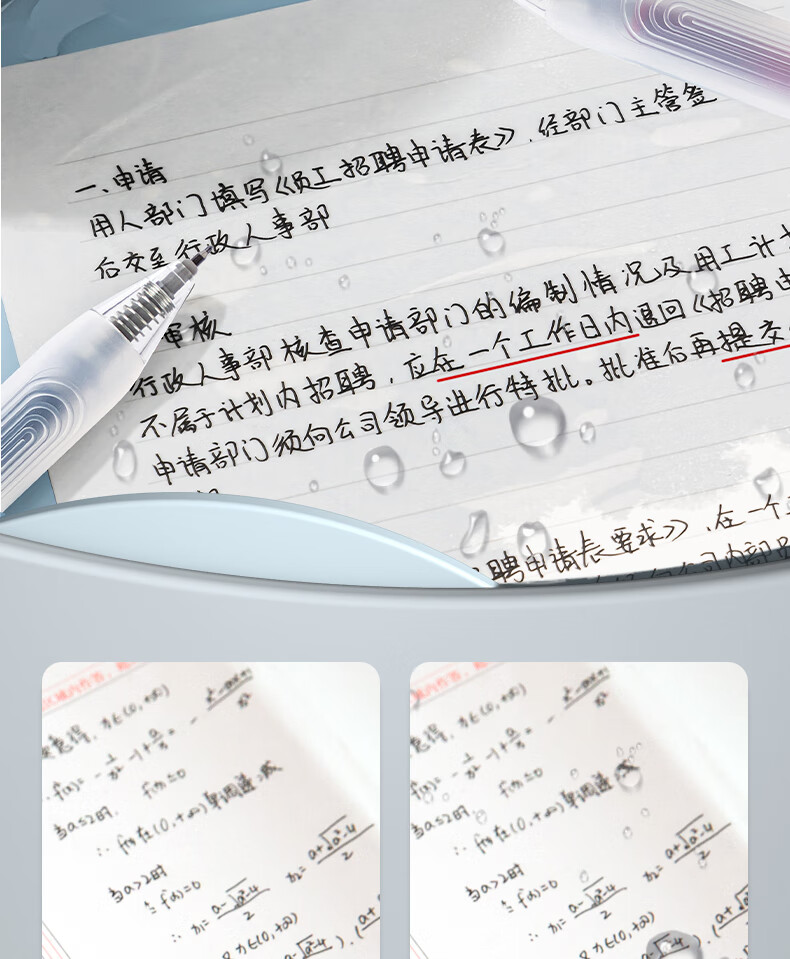 一、申请
用人部门填写《员工招聘申请表》,经部门主管签
后交至行政人事部
审核
行政人事部核查申请部门的编制情况及用工计划
不属于计划内招聘,应在一个工作日内退回《招聘申
申请部门须向公司领导进行特批。批准后再提交
聘申请表要求》,在一个工
公司内部
意得,x∈(0,+∞)
f'(x)=-1/x²-1+a/x=-(x²-ax+1)/x²
当a≤2时, f'(x)≤0
∴f(x)在(0,+∞)单调递减
当a>2时
令f'(x)=0
∴x₁=(a-√(a²-4))/2 x₂=(a+√(a²-4))/2
x∈(0,+∞)
意得,x∈(0,+∞)
f'(x)=-1/x²-1+a/x=-(x²-ax+1)/x²
当a≤2时, f'(x)≤0
∴f(x)在(0,+∞)单调递减
当a>2时
令f'(x)=0
∴x₁=(a-√(a²-4))/2 x₂=(a+√(a²-4))/2
又x∈(0,+∞)